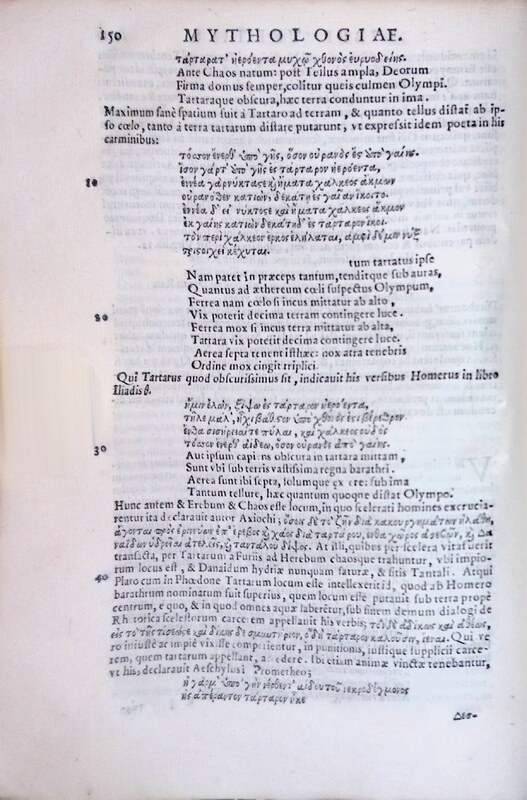 150 MYTHOLOGIAE.
τάρταρα τ' ἠερόεντα μυχῷ χθονὸς εὐρυοδείης.
Ante Chaos natum: post Tellus ampla, Deorum
Firma domus semper, colitur queis culmen Olympi.
Tartaraque obscura, hæc terra conduntur in ima.
Maximum sanè spatium fuit à Tartaro ad terram, & quanto tellus distat ab ip-
so cœlo, tanto à terra tartarum distare putarunt, vt expressit idem poeta in his
carminibus:
τόσσον ἔνερθ' ὑπὸ γῆς, ὅσον οὐρανὸς ἐς' ἀπὸ γαίης.
ἶσον γάρ τ' ἀπὸ γῆς ἐς τάρταρον ἠερόεντα,
10 ἐννέα γὰρ νύκτας καὶ ἤματα χάλκεος ἄκμων
οὐρανόθεν κατιὼν, δεκάτῃ ἐς γαῖαν ἵκοιτο.
ἐννέα δ' νύκτας καὶ ἤματα χάλκεος ἄκμον
ἐκ γαίης κατιὼν δεκάτῃ δ' ἐς τάρταρον ἵκοι.
τὸν περὶ χάλκεον ἕρκος ἐλήλαται, ἀμφὶ δέ μιν νὺξ
κέχυται.
tum tartatus ipse
Nam patet in præceps tantum, tenditque sub auras,
Quantus ad æthereum cœli suspectus Olympum,
Ferrea nam cœlo si incus mittatur ab alto,
20 Vix poterit decima terram contingere luce.
Ferrea mox si incus terra mittatur ab alta,
Tartara vix poterit decima contingere luce.
Aerea septa tenent isthæc: nox atra tenebris
Ordine mox cingit triplici.
Qui Tartarus quod obscurissimus sit, indicauit his versibus Homerus in libro
Iliadis θ.
ἤ μιν ἑλὼν, ῥίψω ἐς τάρταρον ἠερόεντα,
τῆλε μάλ', ἧχι βάθιστον ὑπὸ χθονός ἐστι βέρεθρον.
ἔνθα σιδήρειαί τε πύλαι, καὶ χάλκεος οὐδὸς
30 τόσσον ἔνερθ' ἀίδεω, ὅσον οὐρανὸς ἀπὸ γαίης.
Aut ipsum capiens obscura in tartara mittam,
Sunt vbi sub terris vastissima regna barathri.
Aerea sunt ibi septa, solumque ex ære: sub ima
Tantum tellure, hæc quantum quoqne distat Olympo.
Hunc autem & Erebum & Chaos este locum, in quo scelerati homines excrucia-
rentur ita declarauit autor Axiochi; ὅσοις δὲ τὸ ζῆν διὰ κακουργημάτων ἠλάθη,
ἄγονται πρὸς ἐρινύων ἐπ' ἔρεβος καὶ χάος διὰ ταρτάρου, ἔνθα χῶρος ἀσεβῶν, καὶ Δα
ναΐδων ὑδρεῖαι ἀτελεῖς, καὶ ταντάλου δίψος. At illi, quibus per scelera vita fuerit
transacta, per Tartarum a Furiis ad Herebum chaosque trahuntur, vbi impio-
rum locus est, & Danaidum hydriæ nunquam saturæ, & sitis Tantali. Atqui
40 Plato cum in Phœdone Tartarum locum esse intellexerit id, quod ab Homero
barathrum nominatur sit superius, quem locum esse putauit sub terra propè
centrum, e quo, & in quod omnes aquæ laberetur, sub finem demum dialogi de
Rhetorica scelestorum carcerem appellauit his verbis; τὸν δὲ ἀδίκως καὶ ἀθέως,
εἰς τὸ τῆς τίσεώς τε καὶ δίκης δεσμωτήριον, ὃ δὴ τάρταρον καλοῦσιν, ἰέναι. Qui ve
ro iniustè ac impiè vixisse comperientur, in punitionis, iustique supplicii carce-
rem, quem tartarum appellant, accedere. Ibi etiam animæ vinctæ tenebantur,
vt his declarauit Aeschylus Prometheo;
γάρ μ' ὑπὸ γῆν νέρθεν τ' ἀΐδου τοῦ νεκροδέγμονος
εἰς ἀπέραντον τάρταρον ἧκε
Δεσ-